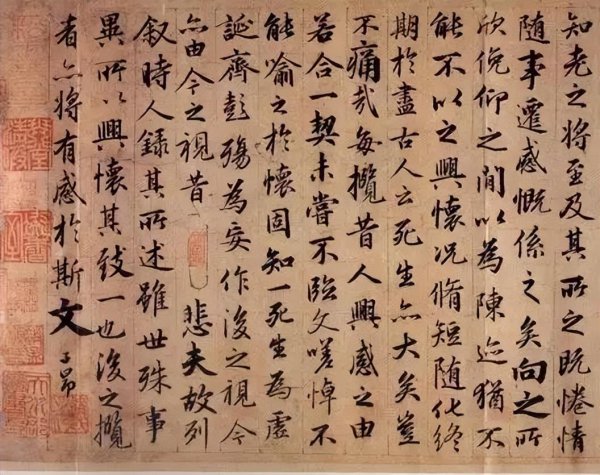 知老之将至及其所之既惓情
随事遷感慨係之矣向之所
欣俛仰之間以為陳迹猶不
能不以之興懷况脩短随化終
期於盡古人云死生亦大矣豈
不痛哉每攬昔人興感之由
若合一契未嘗不臨文嗟悼不
能喻之於懷固知一死生為虛
誕齊彭殤為妄作後之視今
亦由今之視昔 悲夫故列
叙時人録其所述雖世殊事
異所以興懷其致一也後之攬
者亦将有感於斯文 子昂